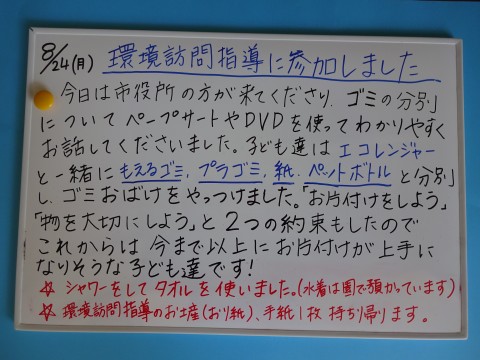 8/24(月) 環境訪問指導に参加しました
今日は市役所の方が来てくださり、ゴミの分別
についてペープサートやDVDを使ってわかりやすく
お話してくださいました。子ども達はエコレンジャー
と一緒にもえるゴミ、プラゴミ、紙、ペットボトルと分別
し、ゴミおばけをやっつけました。「お片付けをしよう」
「物を大切にしよう」と2つの約束もしたので
これからは今まで以上にお片付けが上手に
なりそうな子ども達です!
☆シャワーをしてタオルを使いました。(水着は園で預かっています)
☆環境訪問指導のお土産(おり紙)、手紙1枚持ち帰ります。